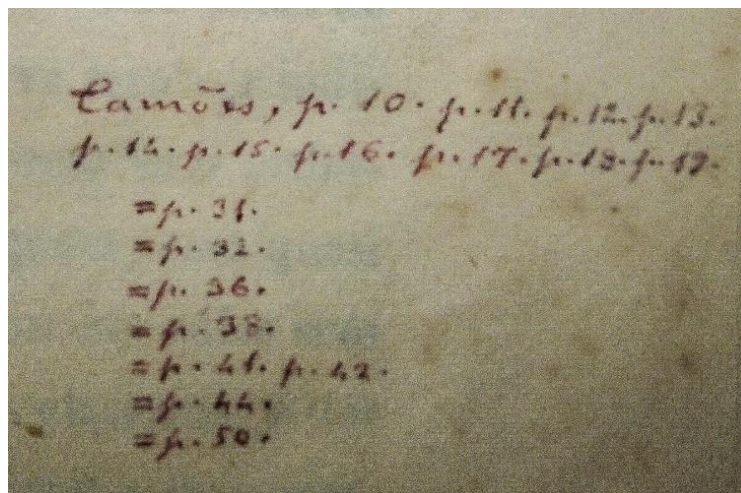 Camões, p. 10. p. 11. p. 12. p. 13.
p. 14. p. 15. p. 16. p. 17. p. 18. p. 19.
= p. 31.
= p. 32.
= p. 36.
= p. 38.
= p. 41. p. 42.
= p. 44.
= p. 50.